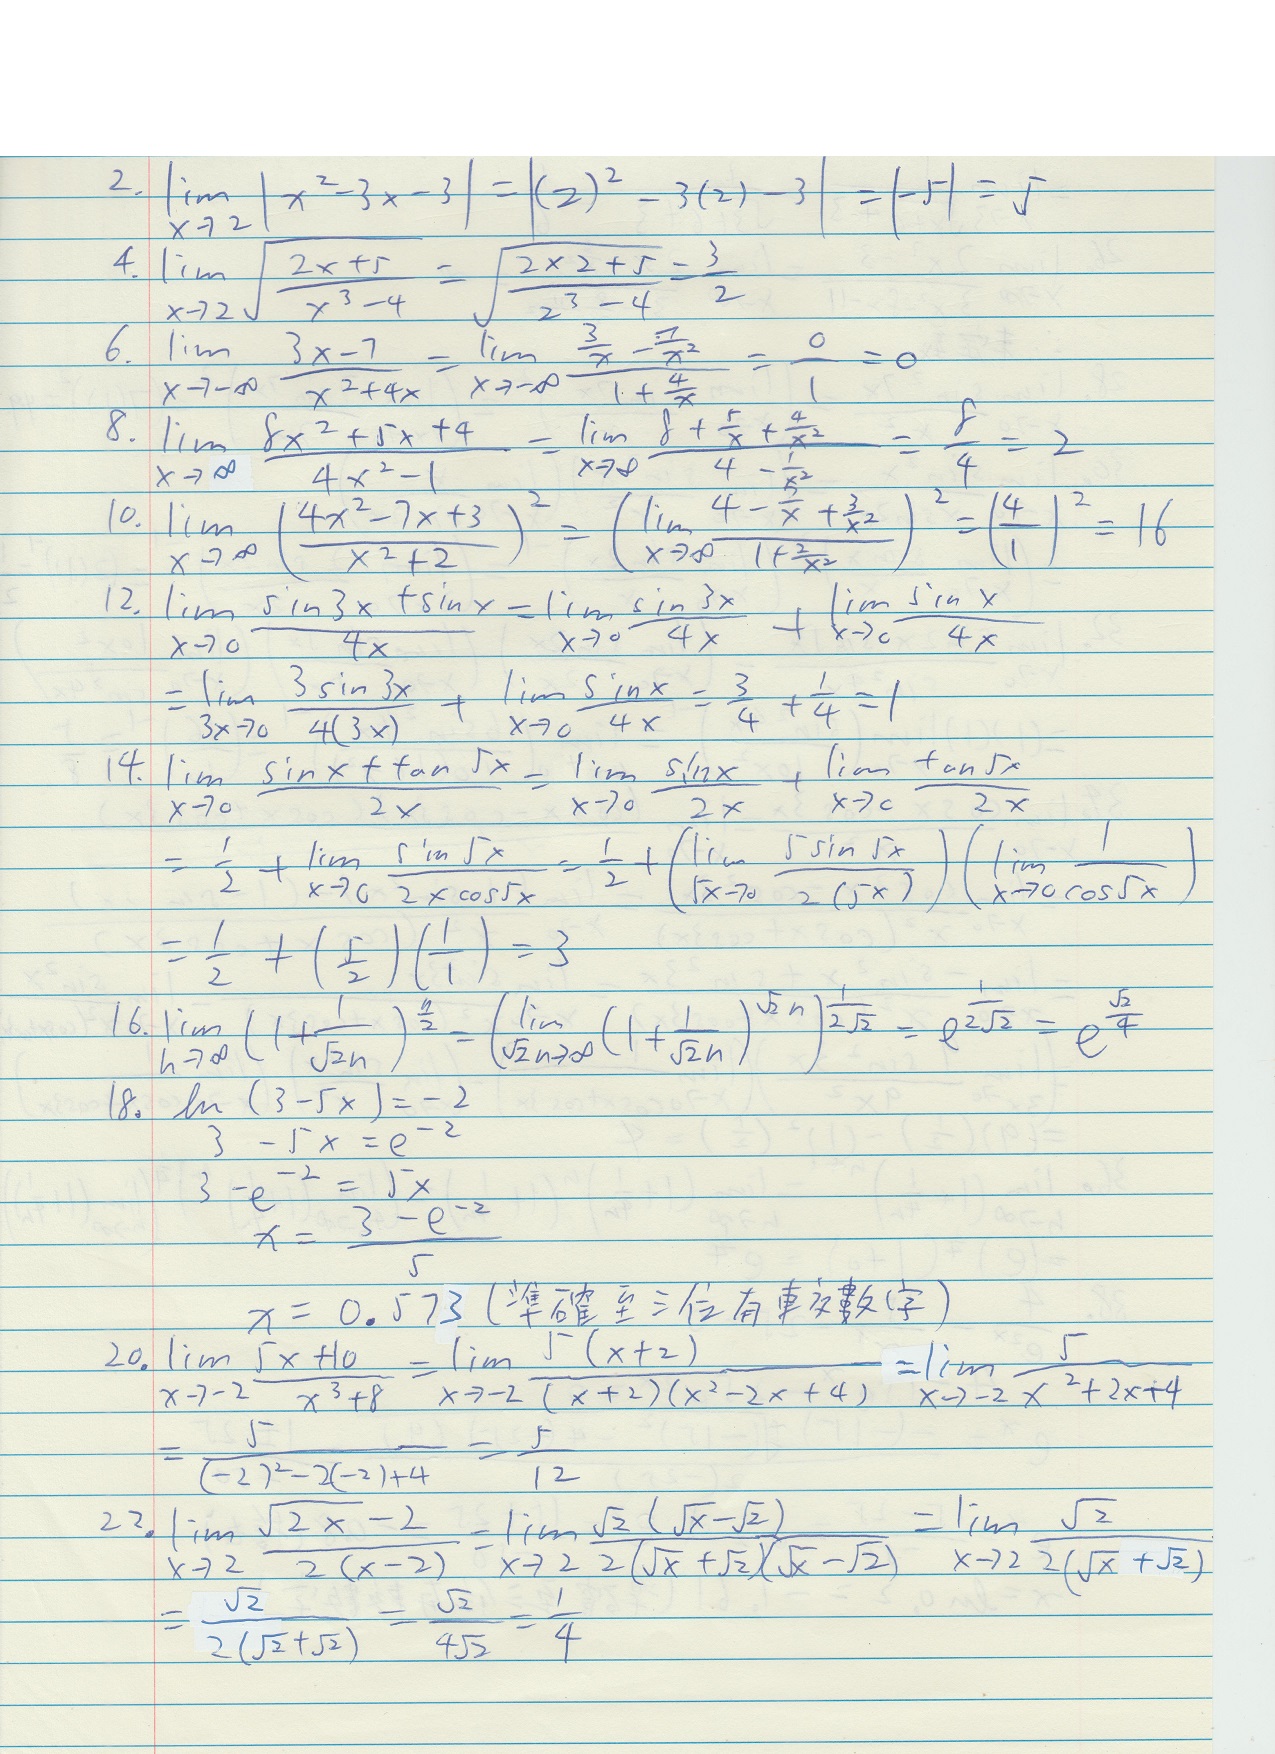 2. lim_{x→2} |x² - 3x - 3| = |(2)² - 3(2) - 3| = |-5| = 5
4. lim_{x→2} √((2x+5)/(x³-4)) = √((2×2+5)/(2³-4)) = 3/2
6. lim_{x→-∞} (3x-7)/(x²+4x) = lim_{x→-∞} (3/x - 7/x²)/(1 + 4/x) = 0/1 = 0
8. lim_{x→∞} (8x²+5x+4)/(4x²-1) = lim_{x→∞} (8 + 5/x + 4/x²)/(4 - 1/x²) = 8/4 = 2
10. lim_{x→∞} ((4x²-7x+3)/(x²+2))² = (lim_{x→∞} (4 - 7/x + 3/x²)/(1 + 2/x²))² = (4/1)² = 16
12. lim_{x→0} (sin3x + sinx)/(4x) = lim_{x→0} sin3x/(4x) + lim_{x→0} sinx/(4x)
= lim_{3x→0} 3sin3x/(4(3x)) + lim_{x→0} sinx/(4x) = 3/4 + 1/4 = 1
14. lim_{x→0} (sinx + tan5x)/(2x) = lim_{x→0} sinx/(2x) + lim_{x→0} tan5x/(2x)
= 1/2 + lim_{x→0} sin5x/(2xcos5x) = 1/2 + (lim_{5x→0} 5sin5x/(2(5x)))(lim_{x→0} 1/cos5x)
= 1/2 + (5/2)(1/1) = 3
16. lim_{n→∞} (1 + 1/(√2n))^{n/2} = (lim_{√2n→∞} (1 + 1/(√2n))^{√2n})^{1/(2√2)} = e^{1/(2√2)} = e^{√2/4}
18. ln(3-5x) = -2
3 - 5x = e^{-2}
3 - e^{-2} = 5x
x = (3 - e^{-2})/5
x = 0.573 (準確至三位有效數字)
20. lim_{x→-2} (5x+10)/(x³+8) = lim_{x→-2} 5(x+2)/((x+2)(x²-2x+4)) = lim_{x→-2} 5/(x²+2x+4)
= 5/((-2)²-2(-2)+4) = 5/12
22. lim_{x→2} (√(2x) - 2)/(2(x-2)) = lim_{x→2} √2(√x-√2)/(2(√x+√2)(√x-√2)) = lim_{x→2} √2/(2(√x+√2))
= √2/(2(√2+√2)) = √2/(4√2) = 1/4